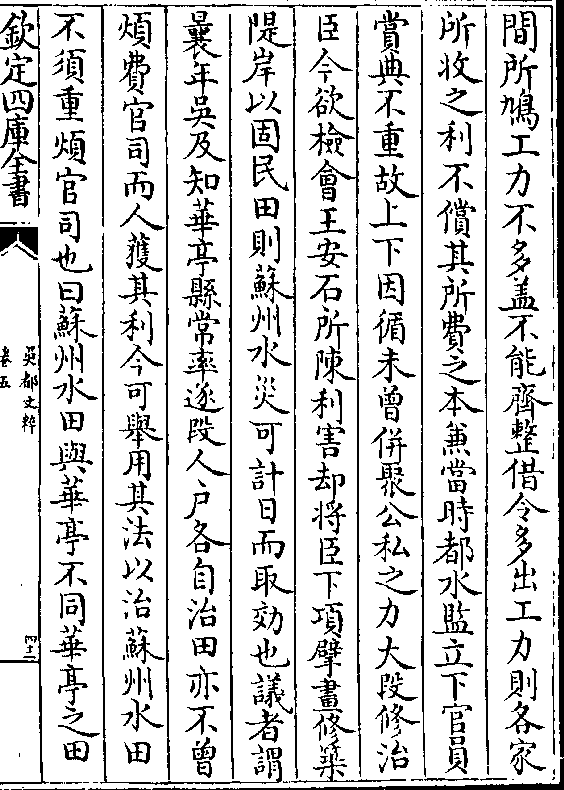 間所鳩工力不多盖不能齊整借令多出工力則各家
所收之利不償其所費之本兼當時都水監立下官員
賞典不重故上下因循未曾併聚公私之力大段修治
臣今欲檢會王安石所陳利害却將臣下項擘畫修築
隄岸以固民田則蘇州水災可計日而取効也議者謂
曩年吳及知華亭縣常率逐段人户各自治田亦不曾
煩費官司而人獲其利今可舉用其法以治蘇州水田
不須重煩官司也曰蘇州水田與華亭不同華亭之田
欽定四庫全書
吳都文粹
卷五
四十二